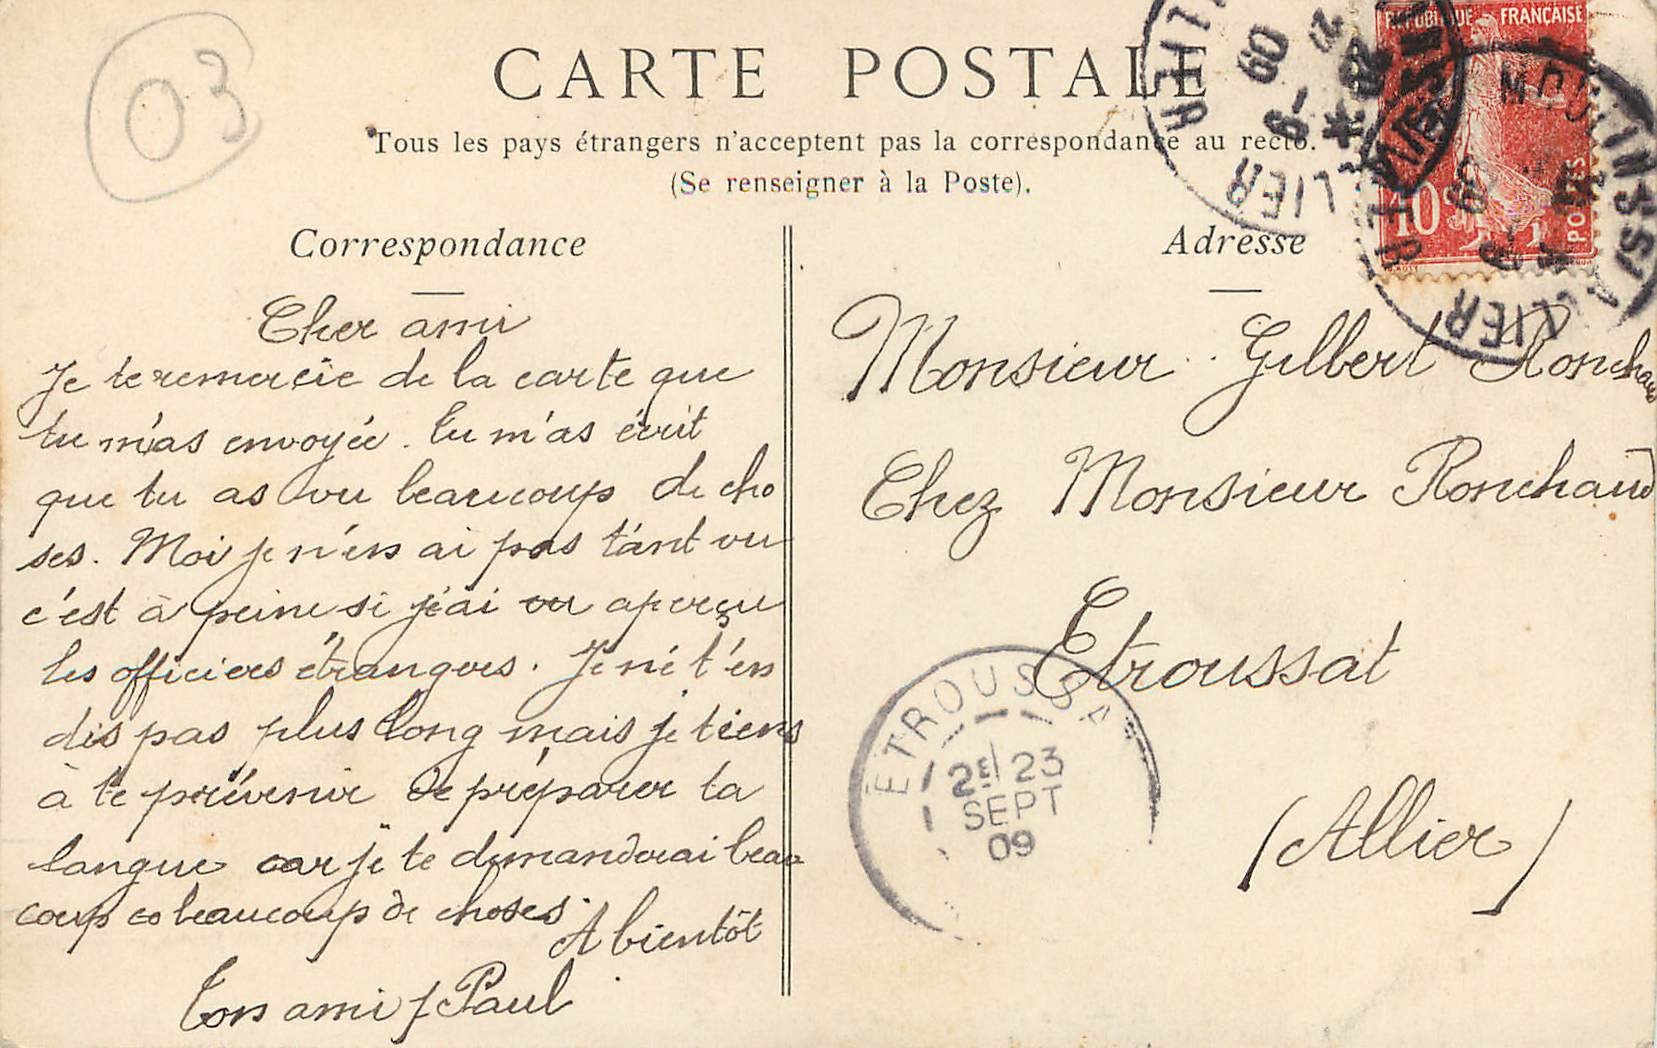 03
CARTE POSTALE
Tous les pays étrangers n'acceptent pas la correspondance au recto.
(Se renseigner à la Poste).
Correspondance
Cher ami
Je te remercie de la carte que
tu m'as envoyée. tu m'as écrit
que tu as vu beaucoup de cho
ses. Moi je n'en ai pas tant vu
c'est à peine si j'ai vu aperçu
les officiers étrangers. Je ne t'en
dis pas plus long mais je tiens
à te prévenir de préparer ta
langue car je te demanderai beau
coup beaucoup de choses.
A bientôt
Ton ami Paul
Adresse
Monsieur Gilbert Ronchaud
Chez Monsieur Ronchaud
Etroussat
(Allier)
RÉPUBLIQUE FRANÇAISE
10
POSTES
MOULINS-S
ALLIER
ALLIER
09
ÉTROUSSA
2E 23
SEPT
09